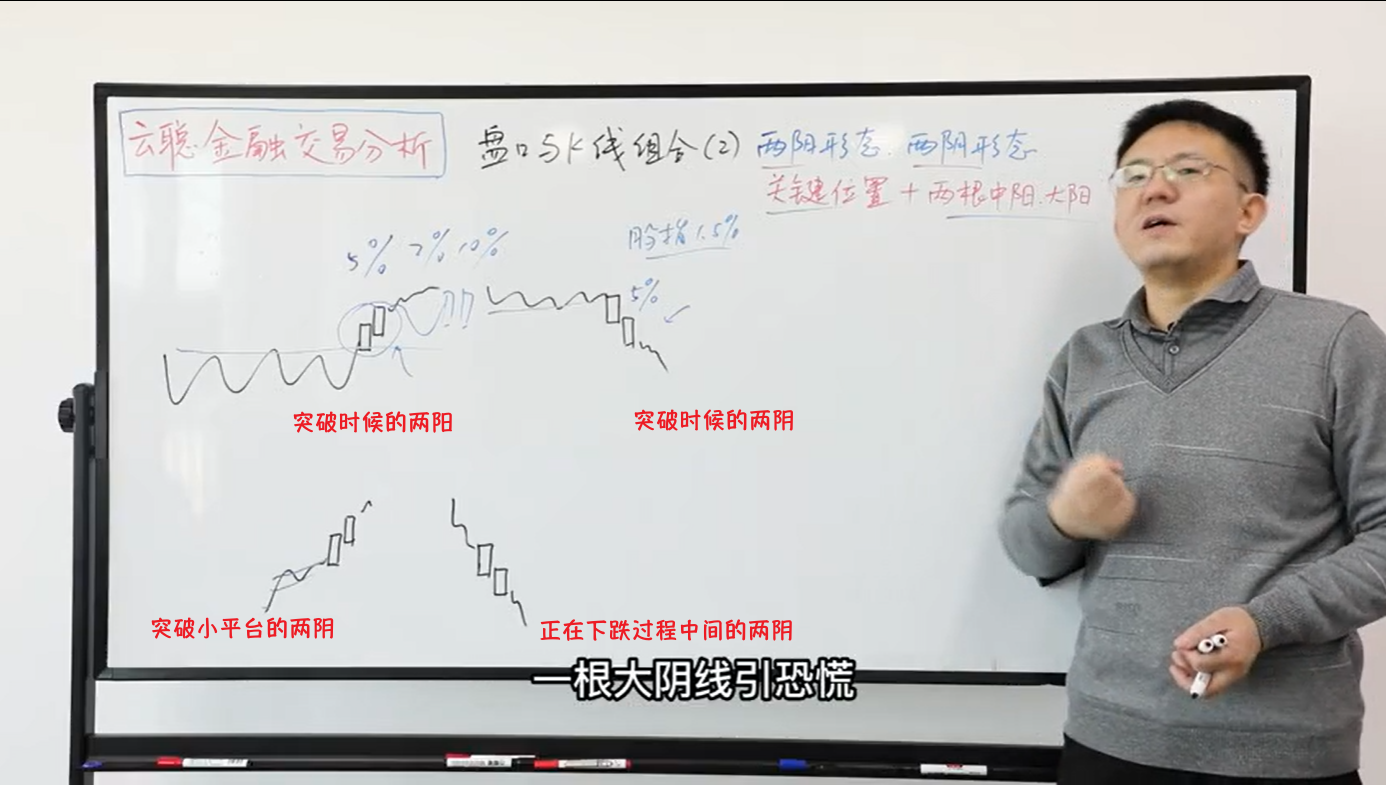 云聪金融交易分析
盘口与K线组合(2) 两阳形态、两阴形态
关键位置+两根中阳、大阳
5% 7% 10%
股指1.5%
5%
突破时候的两阳
突破时候的两阴
突破小平台的两阴
正在下跌过程中间的两阴
一根大阴线引恐慌